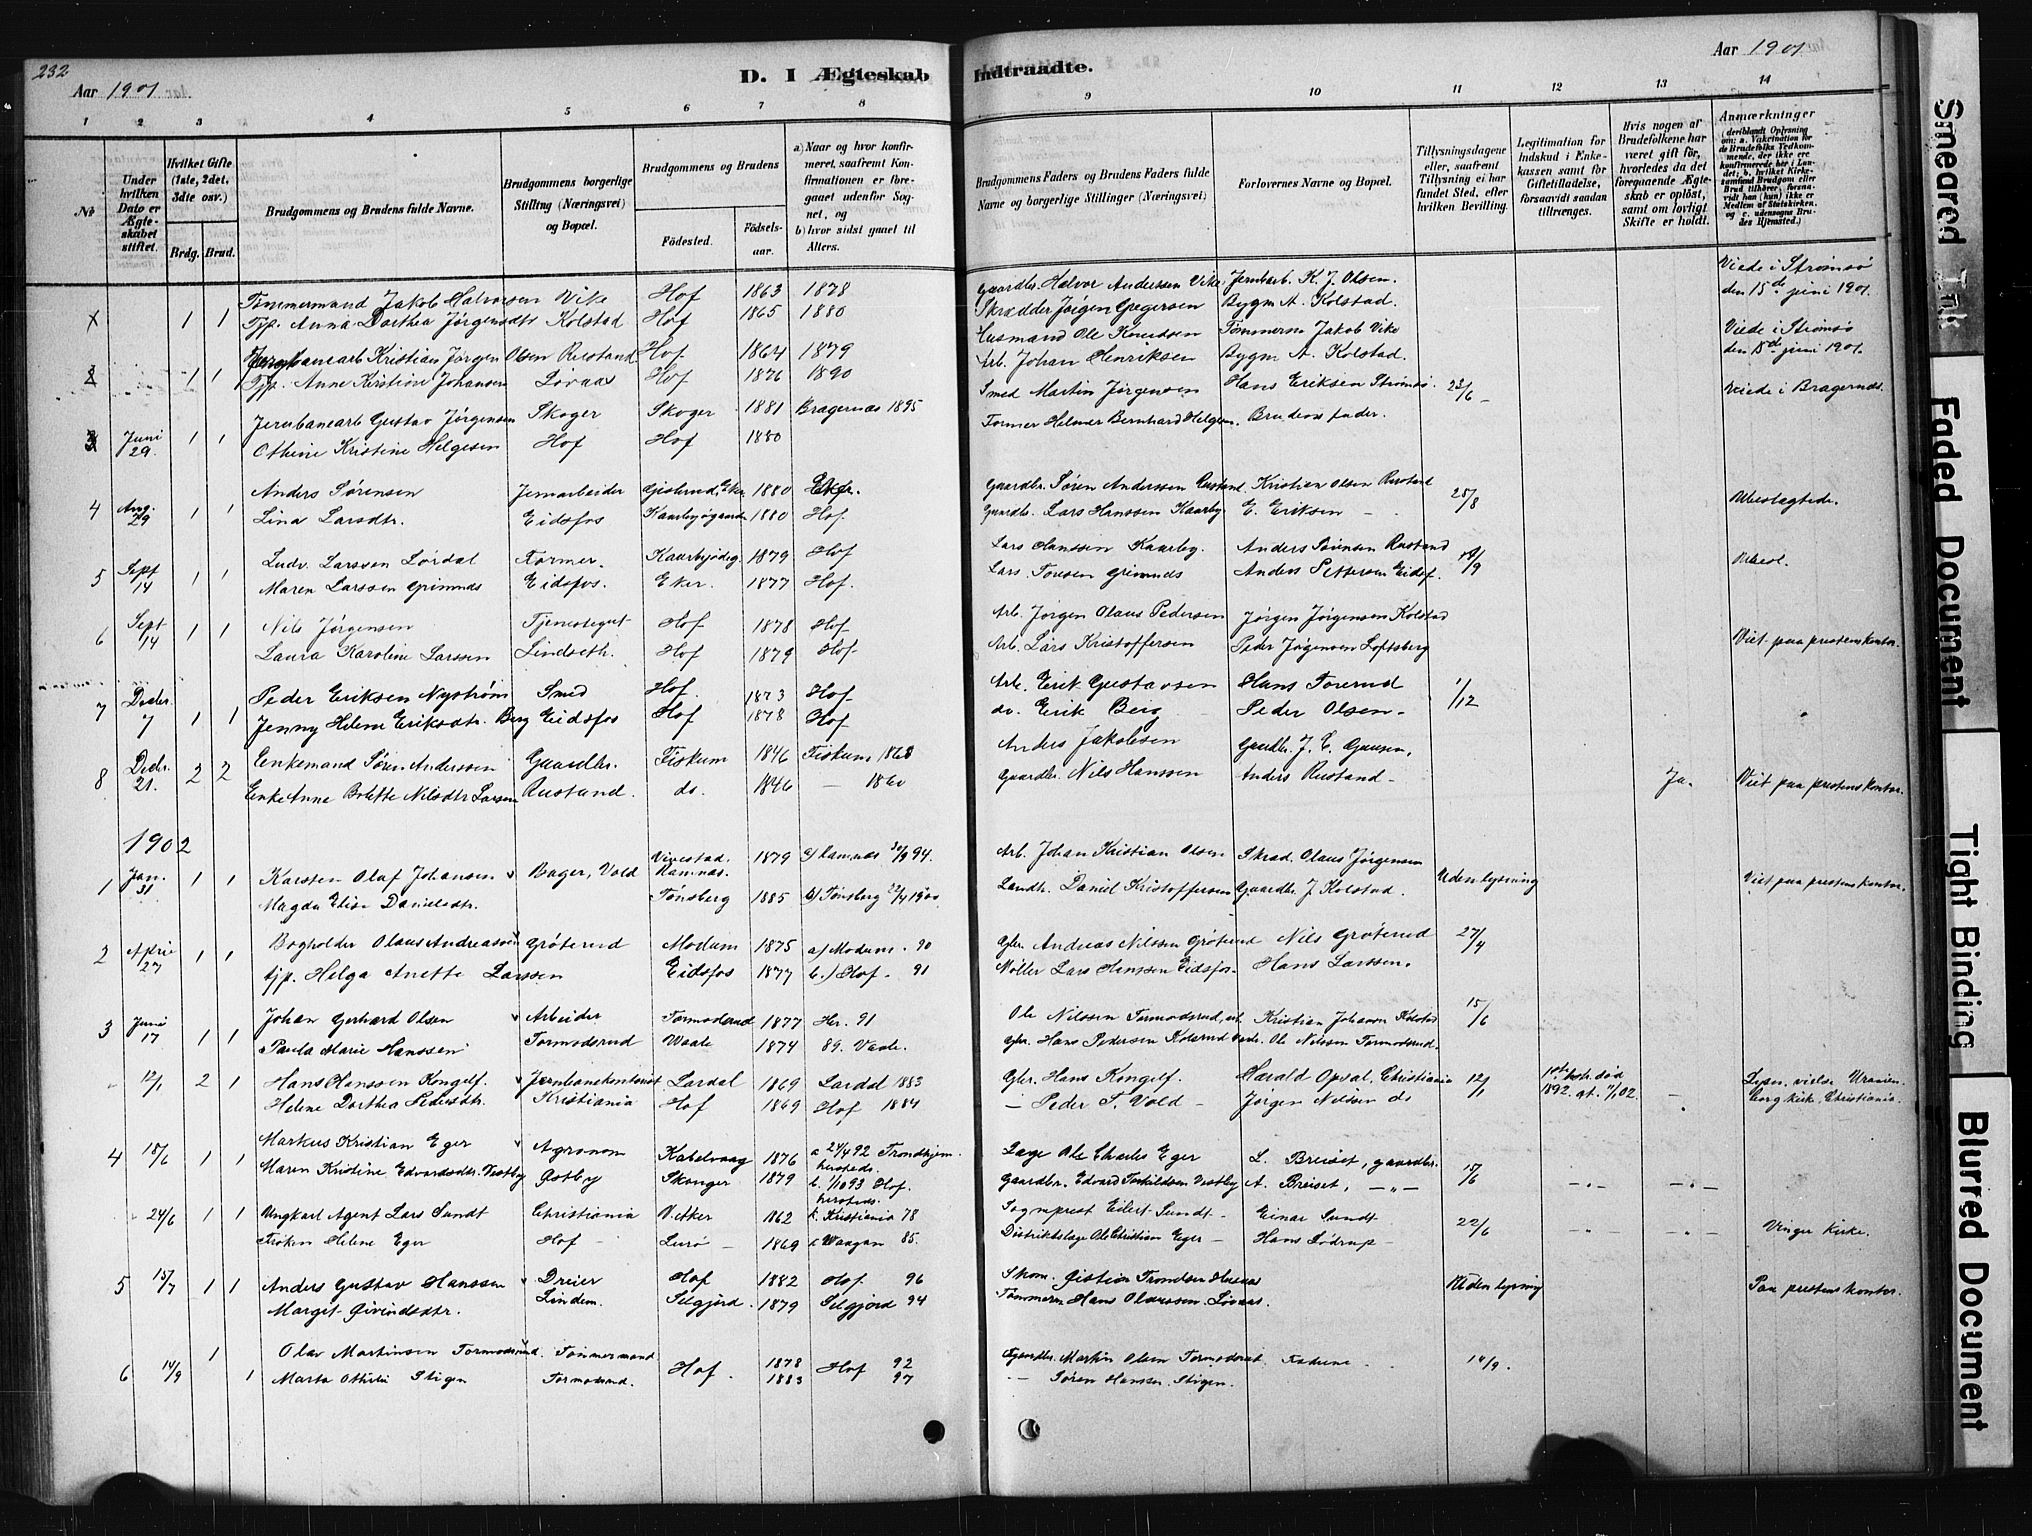 232
Aar 1901
D. I Ægteskab Indtraadte.
Aar 1901
1 2 3 4 5 6 7 8 9 10 11 12 13 14
№
Under hvilken Dato er Ægteskabet stiftet.
Hvilket Gifte (1ste, 2det, 3dte osv.)
Brdg. Brud.
Brudgommens og Brudens fulde Navne.
Brudgommens borgerlige Stilling (Næringsvei) og Bopæl.
Brudgommens og Brudens
Fødested.
Fødselsaar.
a) Naar og hvor konfirmeret, saafremt Konfirmationen er foregaaet udenfor Sognet, og
b) hvor sidst gaaet til Alters.
Brudgommens Faders og Brudens Faders fulde Navne og borgerlige Stillinger (Næringsvei)
Forlovernes Navne og Bopæl.
Tillysningsdagene eller, saafremt Tillysning ei har fundet Sted, efter hvilken Bevilling.
Legitimation for Indskud i Enkekassen samt for Giftetilladelse, forsaavidt saadan tiltrænges.
Hvis nogen af Brudefolkene har været gift før, hvorledes da det foregaaende Ægteskab er opløst, samt om lovligt Skifte er holdt.
Anmærkninger
(deriblandt Oplysning om: a. Vakcination for de Brudefolks Vedkommende, der ikke ere konfirmerede her i Landet; b. hvilket Kirkesamfund Brudgom eller Brud tilhører, forsaavidt han (hun) ikke er Medlem af Statskirken, og c. udensogns Brudes Hjemsted.)
Tømmermand Jakob Halvorsen Vike Hof 1863 1878 Gaardbr. Halvor Anderssen Vike Jernbarb. K. J. Olsen. Viede i Strømsø
1 1 Tjp. Anna Dorthea Jørgensdtr Kolstad Hof 1865 1880 Skrædder Jørgen Gregersen Bygm A. Kolstad. den 15de juni 1901.
Jernbanearb Kristian Jørgen Olsen Rustand Hof 1864 1879 Husmand Ole Knudssen Tømmerm Jakob Vike Viede i Strømsø
2 1 1 Tjp. Anne Kristine Johansen Løvaas Hof 1876 1890 Arb. Johan Henriksen Bygm A. Kolstad. den 15de juni 1901.
Jernbanearb Gustav Jørgensen Skoger Skoger 1881 Bragernæs 1895 Smed Martin Jørgensen Hans Eriksen Strømsø. 23/6 Viede i Bragernæs.
3 Juni 29. 1 1 Othine Kristine Helgesen Hof Hof 1880 Former Helmer Bernhard Helgesen. Brudens fader.
4 Aug. 29 1 1 Anders Sørensen Jernarbeider Eker 1880 Gaardbr. Søren Anderssen Rustand. Kristian Olsen Rustand 25/8 Ubeslægtede.
Lina Larsdtr. Eidsfos 1880 Hof. Gaardbr. Lars Hanssen Kaarby E. Eriksen
5 Sept 14 1 1 Ludv. Larssen Lørdal Former. 1879 Hof Lars Hanssen Kaarby. Anders Sørensen Rustand Ubesl.
Maren Larssen Grimnds Eidsfos. Eker. 1877 Hof. Lars Toresen Grimnds Anders Pettersen Eidsf.
6 Sept 14 1 1 Nils Jørgensen Tjenestegut Hof 1878 Hof Arb. Jørgen Olaus Pedersen Jørgen Jørgensen Kolstad
Laura Karoline Larssen Lindseth. Hof 1879 Hof Arb. Lars Kristoffersen Peder Jørgensen Loftsberg Viet paa prestens kontor.
7 Decbr. 7 1 1 Peder Eriksen Nystrøm Smed Hof 1873 Hof Arb. Erik Gustavsen Hans Torerud 1/12
Jenny Helene Eriksdtr. Berg Eidsfos Hof 1878 Hof do. Erik Berg Peder Olsen
8 Decbr. 21. 2 2 Enkemand Søren Anderssen Gaardbr. Fiskum 1846 Fiskum 1862 Anders Jakobsen Gaardbr. J. E. Gausen.
Enke Anne Bolette Nilsdtr Larsen Rustand. do. 1846 — 1860 Gaardbr. Nils Hanssen Anders Rustand Ja. Viet paa prestens kontor.
1902
1 Jan. 31 1 1 Karsten Olaf Johansen Bager, Vold Vivestad. Ramnæs. 1879 a) Ramnæs 30/9 94. Arb. Johan Kristian Olsen Skræd. Olaus Jørgensen Uden lysning Viet paa prestens kontor.
Magda Elise Danielsdtr. Tønsberg 1885 b) Tønsberg 22/4 1900 Landh. Daniel Kristoffersen Gaardbr. J. Kolstad.
2 April 27 1 1 Bogholder Olaus Andreassen Grøterud Modum 1875 a) Modum. 90 Gbr. Andreas Nilssen Grøterud Nils Grøterud 27/4
tjp. Helga Anette Larssen Eidsfos 1877 b.) Hof. 91 Møller Lars Hanssen Eidsfos. Hans Larssen.
3 Juni 17 1 1 Johan Gerhard Olsen Arbeider Tormodsrud 1877 Her. 91 Ole Nilssen Tormodsrud, arb. Kristian Johansen Kolstad 15/6
Paula Marie Hanssen Tormodsrud Waale 1874 89. Vaale. Gbr. Hans Pedersen Kolsrud Vaale. Ole Nilssen Tormodsrud.
12/1 2 1 Hans Hanssen Kongelf. Jernbanekontorist Lardal 1869 Lardal 1883 Gbr. Hans Kongelf. Harald Opsal, Christiania 12/1 1ste hstr. død 1892. 1/1 02. Lysn. vielse Uranienborg kirke, Christiania.
Helene Dorthea Pedersdtr. Kristiania Hof 1869 Hof 1884 — Peder T. Vold Jørgen Nilsen do
4 18/6 1 1 Markus Kristian Eger Agronom Kabelvaag 1876 a 24/4 92 Trondhjem. Læge Ole Charles Eger L. Breiset, gaardbr. 15/6
Maren Kristine Edvardsdtr. Vestby Østby Skonger 1879 b. 1/10 93 Hof. Gaardbr. Edvard Terkildsen Vestby A. Breiset, —„—
24/6 1 1 Ungkarl Agent Lars Sundt Christiania V. Aker 1862 k. Kristiania 78 Sognprest Eilert Sundt Einar Sundt 22/6 Vinger Kirke.
Frøken Helene Eger Hof Lurø 1869 Waagan 85. Distriktslæge Ole Christian Eger Hans Lødrup
5 15/7 1 1 Anders Gustav Hanssen Dreier Hof 1882 Hof. 96 Skom. Gistian Trondsen Uden lysning Paa prestens kontor.
Margit Eivindsdtr. Lindem. Silgjord. 1879 Silgjord 94 Tømmerm Hans Olaussen. Løvaas.
6 14/9 1 1 Olav Martinsen Tormodsrud. Tømmermand Hof. 1878 Hof 92 Gaardbr. Martin Olsen Tormodsrud. Fædrene 14/9.
Marta Othilie Stigen Tormodsrud. 1883 97 — Søren Hansen. Stigen.
Smeared Ink
Faded Document
Tight Binding
Blurred Document